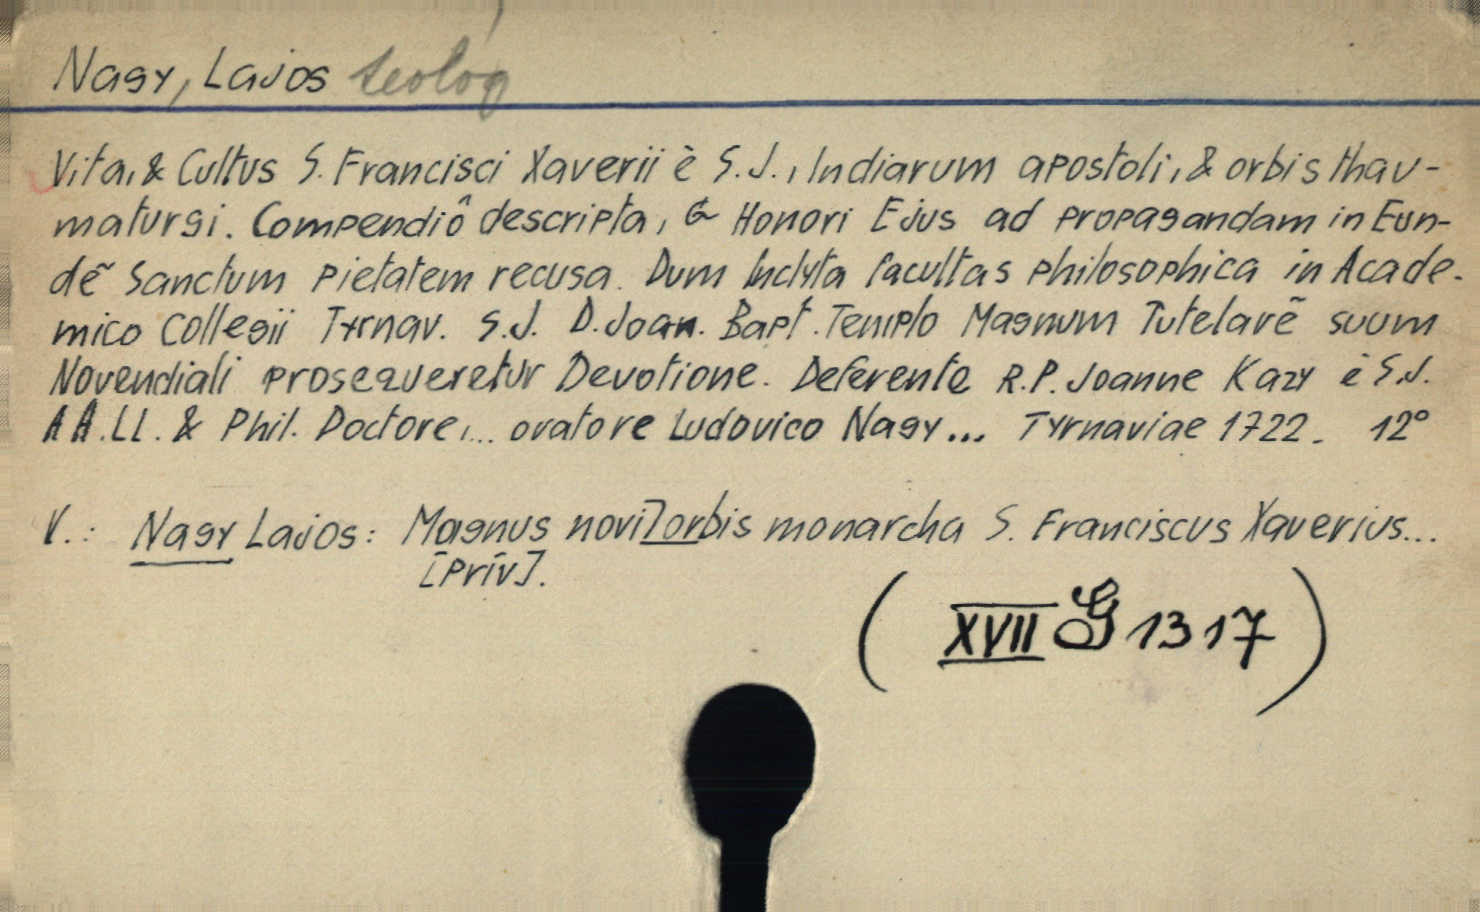 Nagy, Lajos teolog
Vita, & Cultus S. Francisci Xaverii è S.J., Indiarum apostoli, & orbis thau-
maturgi. Compendiô descripta, & Honori Ejus ad propagandam in Eun-
dẽ Sanctum pietatem recusa. Dum Inclyta facultas philosophica in Acade-
mico Collegii Tyrnav. S.J. D. Joan. Bapt. Templo Magnum Tutelarẽ suum
Novendiali prosequeretur Devotione. Deferente R.P. Joanne Kazy è S.J.
AA.LL. & Phil. Doctore,... oratore Ludovico Nagy... Tyrnaviae 1722. 12°
V.: Nagy Lajos: Magnus novi] orbis monarcha S. Franciscus Xaverius...
[Priv].
(XVII G 1317)